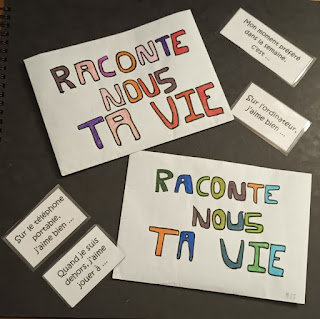 RACONTE
NOUS
TA VIE
Mon moment préféré
dans la semaine,
c'est ...
Sur l'ordinateur,
j'aime bien ...
Sur le téléphone
portable,
j'aime bien ...
Quand je suis
dehors, j'aime
jouer à ...
RACONTE
NOUS
TA VIE